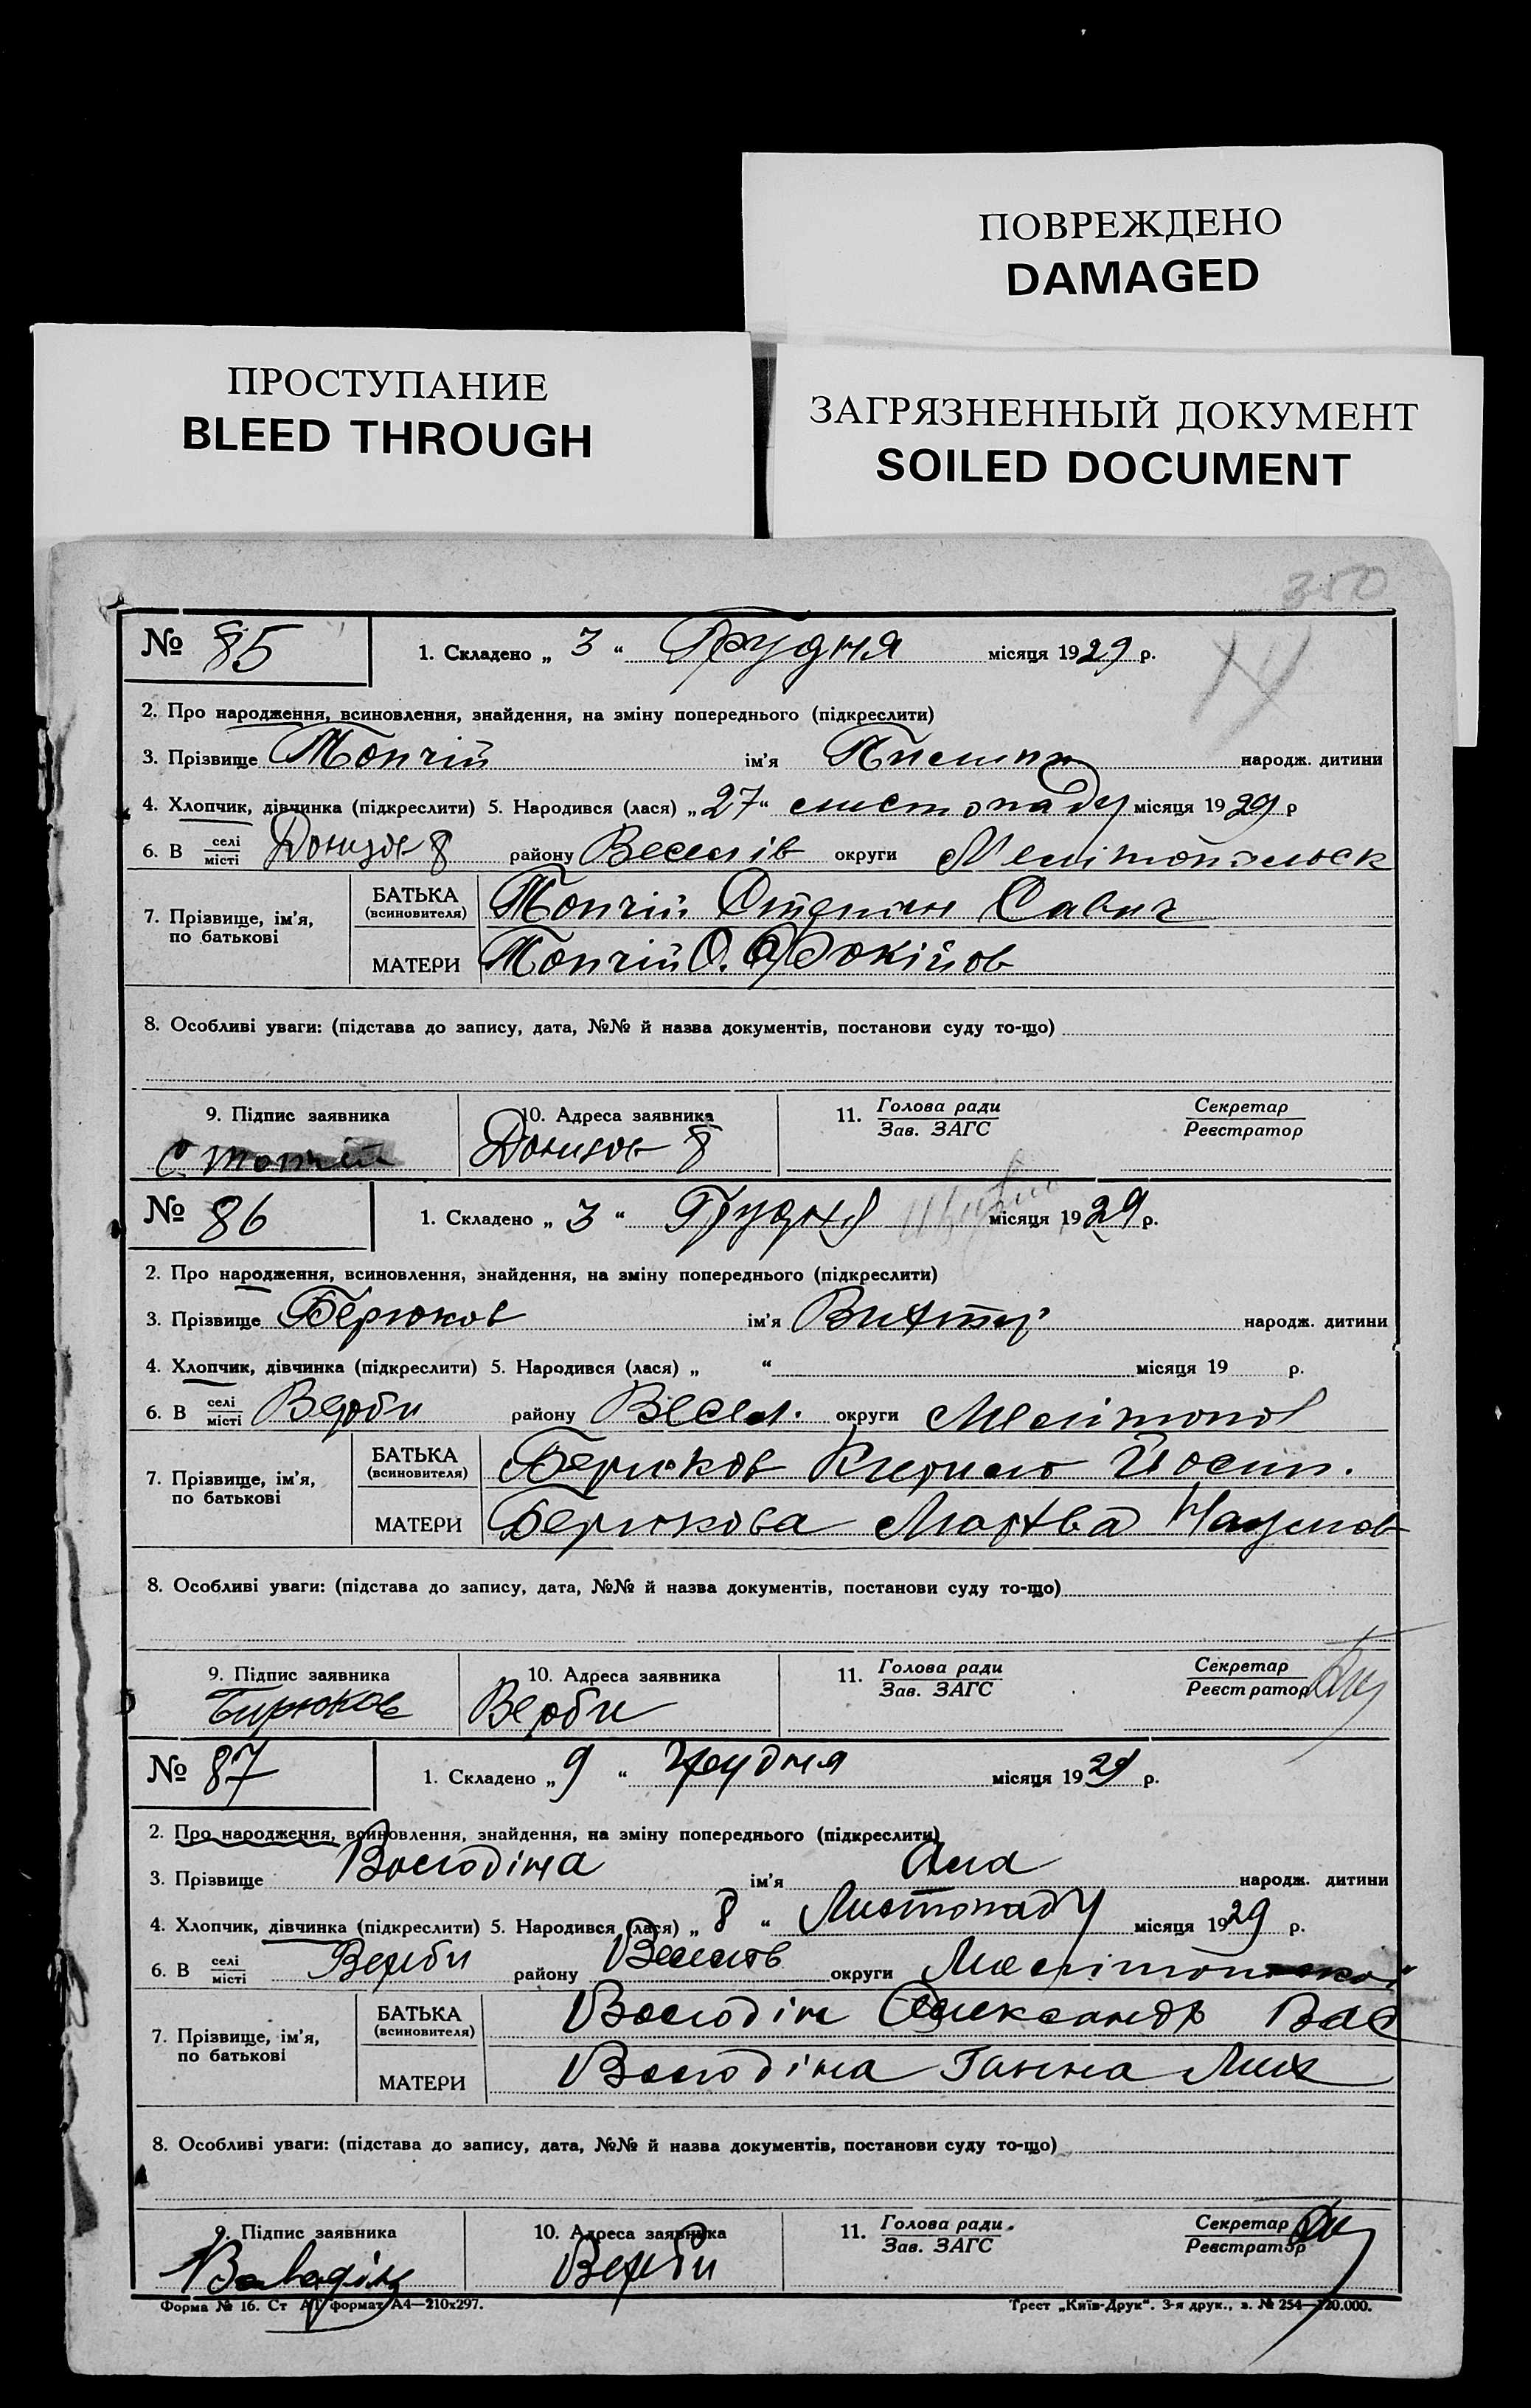 ПОВРЕЖДЕНО
DAMAGED
ПРОСТУПАНИЕ
BLEED THROUGH
ЗАГРЯЗНЕННЫЙ ДОКУМЕНТ
SOILED DOCUMENT
350
№ 85 1. Складено „ 3 “ Грудня місяця 1929 р.
2. Про народження, всиновлення, знайдення, на зміну попереднього (підкреслити)
3. Прізвище Топчій ім'я народж. дитини
4. Хлопчик, дівчинка (підкреслити) 5. Народився (лася) „ 27 “ листопаду місяця 1929 р
6. В селі/місті район у Веселів округи Мелітопільськ
7. Прізвище, ім'я, по батькові
БАТЬКА (всиновителя) Топчій Степан Савич
МАТЕРИ Топчій О.
8. Особливі уваги: (підстава до запису, дата, №№ й назва документів, постанови суду то-що)
9. Підпис заявника 10. Адреса заявника 11. Голова ради/Зав. ЗАГС Секретар/Реєстратор
С Топчій
№ 86 1. Складено „ 3 “ Грудня місяця 1929 р.
2. Про народження, всиновлення, знайдення, на зміну попереднього (підкреслити)
3. Прізвище Берюков ім'я Виктор народж. дитини
4. Хлопчик, дівчинка (підкреслити) 5. Народився (лася) „ “ місяця 19 р.
6. В селі/місті Верби району Весел. округи Мелітопол
7. Прізвище, ім'я, по батькові
БАТЬКА (всиновителя) Берюков Кирило Йосип.
МАТЕРИ Берюкова Марфва Наумов
8. Особливі уваги: (підстава до запису, дата, №№ й назва документів, постанови суду то-що)
9. Підпис заявника 10. Адреса заявника 11. Голова ради/Зав. ЗАГС Секретар/Реєстратор
Бирюков Верби
№ 87 1. Складено „ 9 “ грудня місяця 1929 р.
2. Про народження, всиновлення, знайдення, на зміну попереднього (підкреслити)
3. Прізвище Володіна ім'я Ала народж. дитини
4. Хлопчик, дівчинка (підкреслити) 5. Народився (лася) „ 8 “ Листопаду місяця 1929 р.
6. В селі/місті Верби району Веселов округи
7. Прізвище, ім'я, по батькові
БАТЬКА (всиновителя) Володін Олександр Вас
МАТЕРИ Володіна Ганна Мих
8. Особливі уваги: (підстава до запису, дата, №№ й назва документів, постанови суду то-що)
9. Підпис заявника 10. Адреса заявника 11. Голова ради/Зав. ЗАГС Секретар/Реєстратор
Верби
Форма № 16. Ст А4 формат А4—210х297. Трест „Київ-Друк“. 3-я друк., з. № 254—120.000.